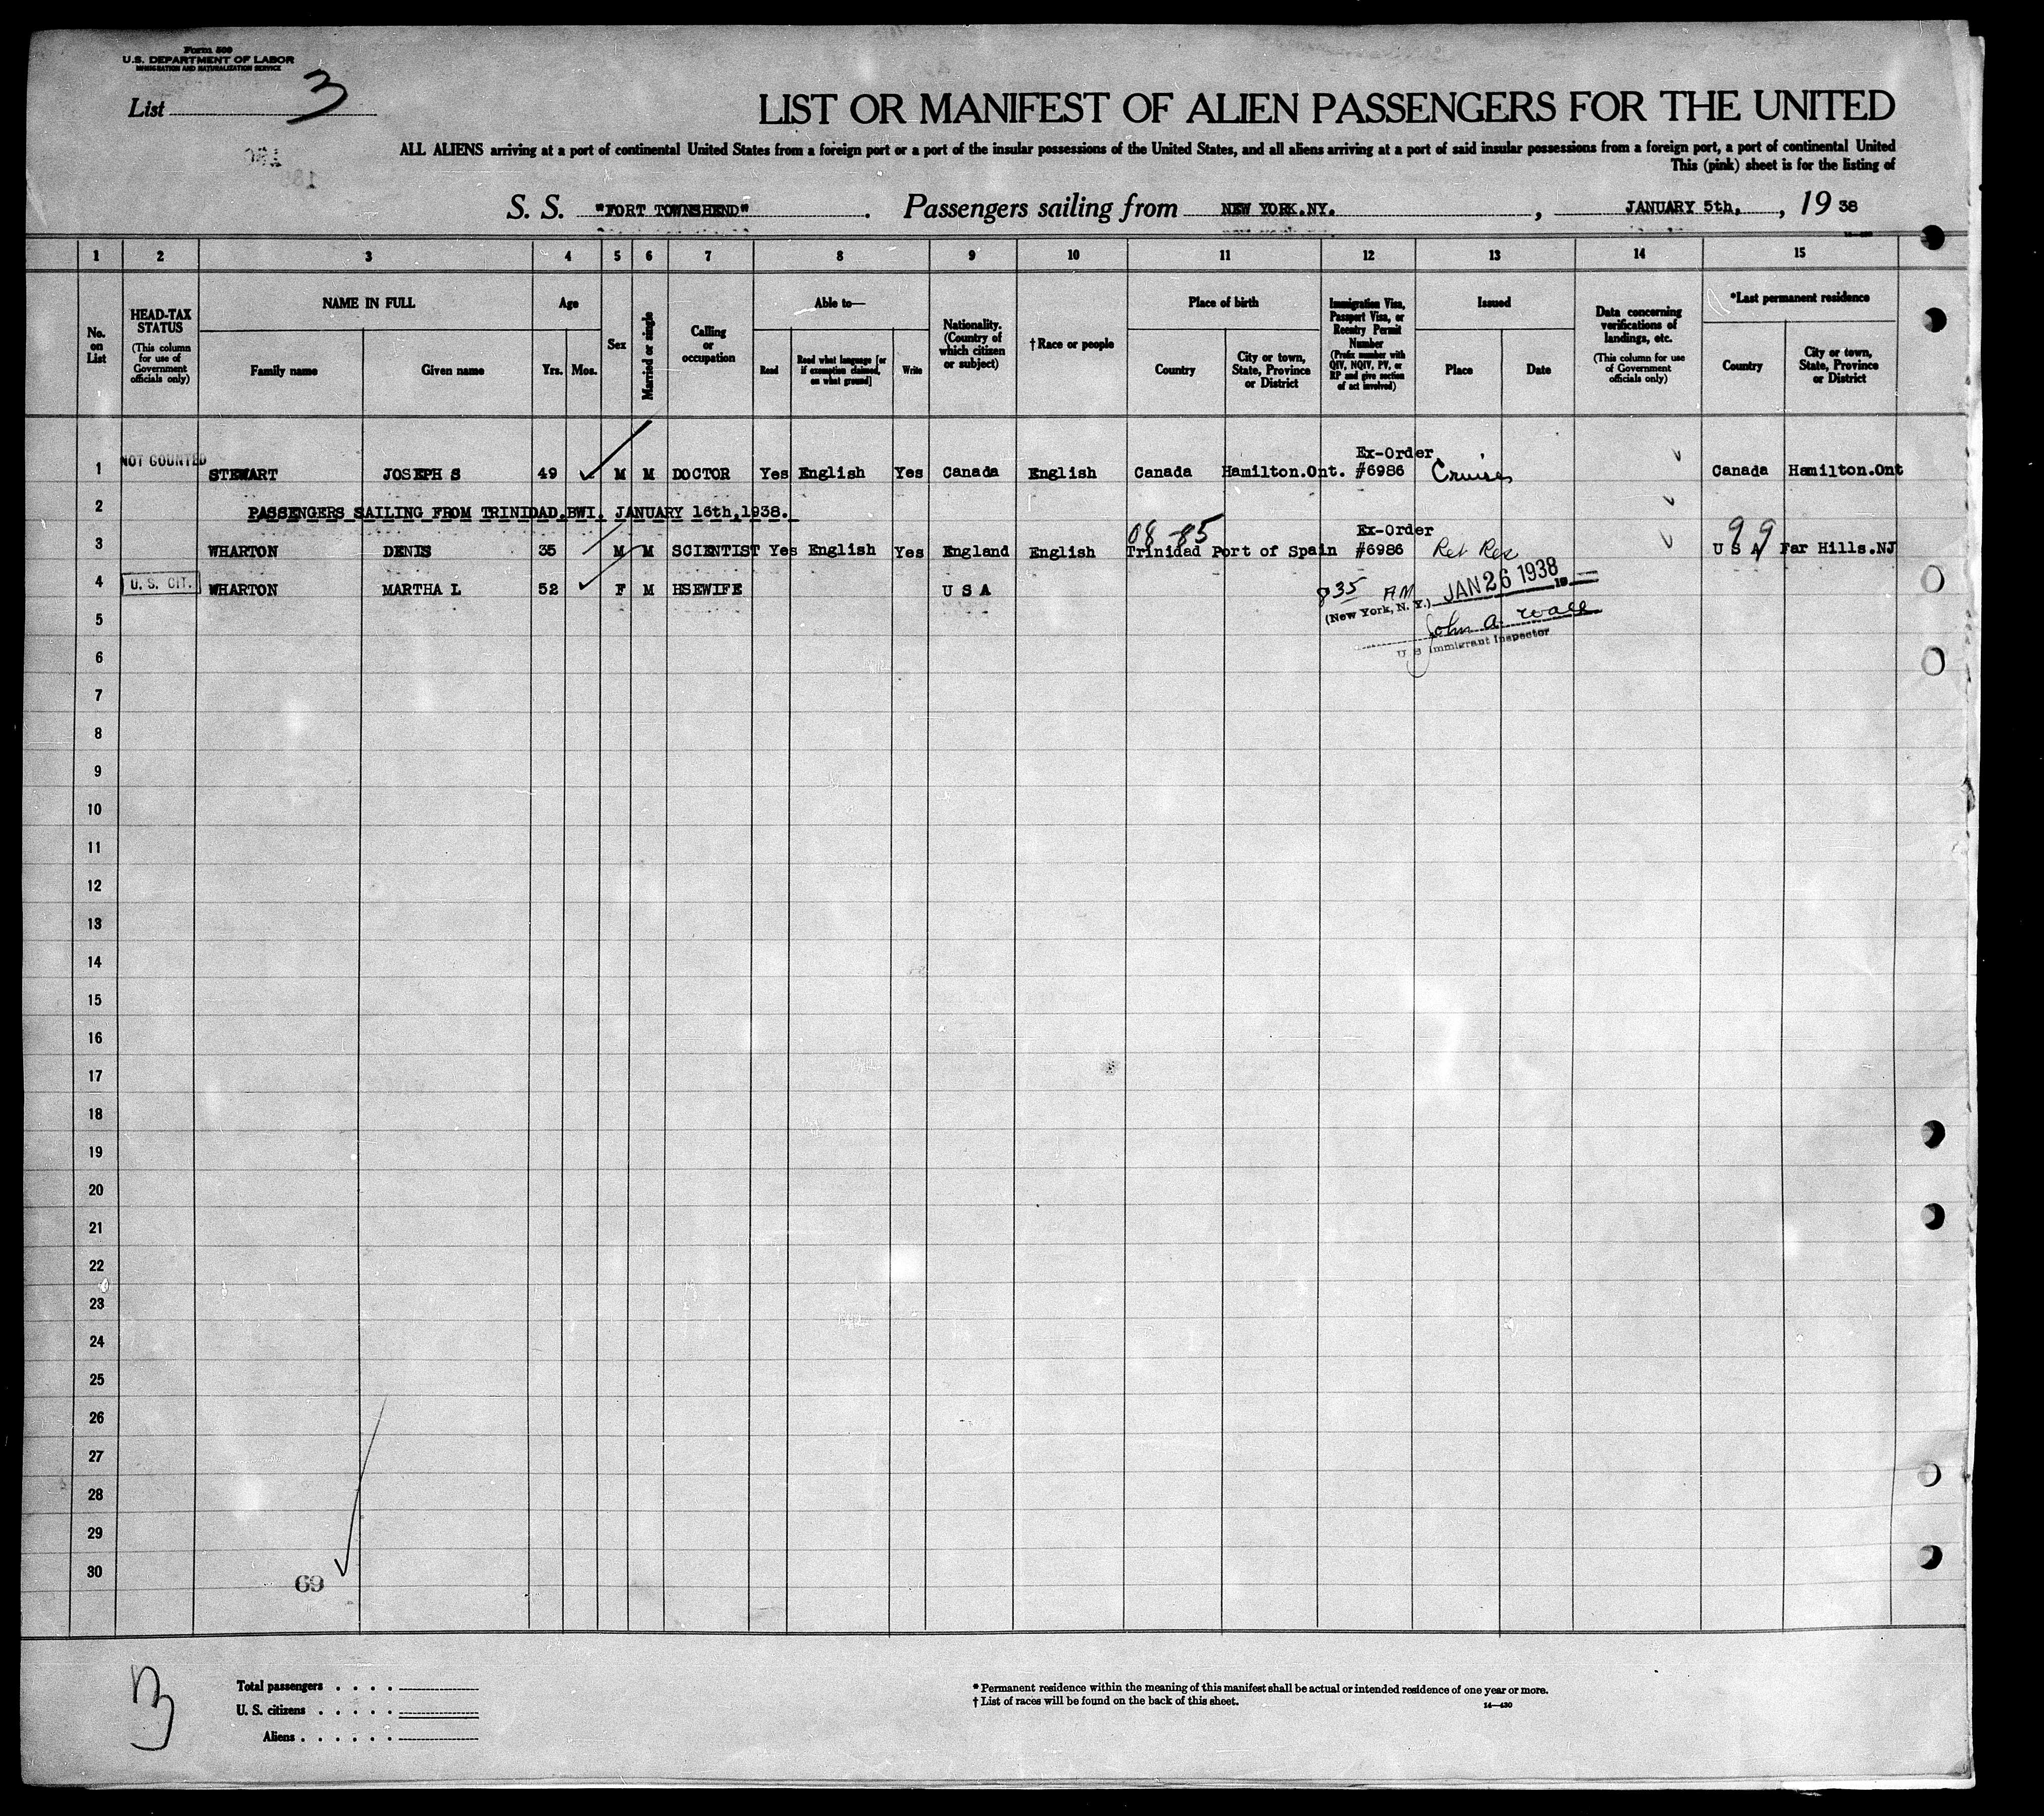 Form 500
U.S. DEPARTMENT OF LABOR
IMMIGRATION AND NATURALIZATION SERVICE
List 3
LIST OR MANIFEST OF ALIEN PASSENGERS FOR THE UNITED
ALL ALIENS arriving at a port of continental United States from a foreign port or a port of the insular possessions of the United States, and all aliens arriving at a port of said insular possessions from a foreign port, a port of continental United
This (pink) sheet is for the listing of
S. S. "FORT TOWNSHEND". Passengers sailing from NEW YORK.NY. , JANUARY 5th, , 19 38
1 2 3 4 5 6 7 8 9 10 11 12 13 14 15
No. on List
HEAD-TAX STATUS (This column for use of Government officials only)
NAME IN FULL
Family name Given name
Age
Yrs. Mos.
Sex
Married or single
Calling or occupation
Able to—
Read Read what language [or if exemption claimed, on what ground] Write
Nationality. (Country of which citizen or subject)
†Race or people
Place of birth
Country City or town, State, Province or District
Immigration Visa, Passport Visa, or Reentry Permit Number (Prefix number with QIV, NQIV, PV, or RP and give section of act involved)
Issued
Place Date
Data concerning verifications of landings, etc. (This column for use of Government officials only)
*Last permanent residence
Country City or town, State, Province or District
1 NOT COUNTED STEWART JOSEPH S 49 M M DOCTOR Yes English Yes Canada English Canada Hamilton.Ont. Ex-Order #6986 Cruise Canada Hamilton.Ont
2 PASSENGERS SAILING FROM TRINIDAD.BWI. JANUARY 16th,1938.
08 -85 99
3 WHARTON DENIS 35 M M SCIENTIST Yes English Yes England English Trinidad Port of Spain Ex-Order #6986 Ret Res U S A Far Hills.NJ
4 U. S. CIT. WHARTON MARTHA L 52 F M HSEWIFE U S A
835 AM JAN 26 1938 19
(New York, N. Y.)
John A. Wall
U S Immigrant Inspector
5
6
7
8
9
10
11
12
13
14
15
16
17
18
19
20
21
22
23
24
25
26
27
28
29
30
69
3
Total passengers . . . .
U. S. citizens . . . . .
Aliens . . . . . .
* Permanent residence within the meaning of this manifest shall be actual or intended residence of one year or more.
† List of races will be found on the back of this sheet.
14—430